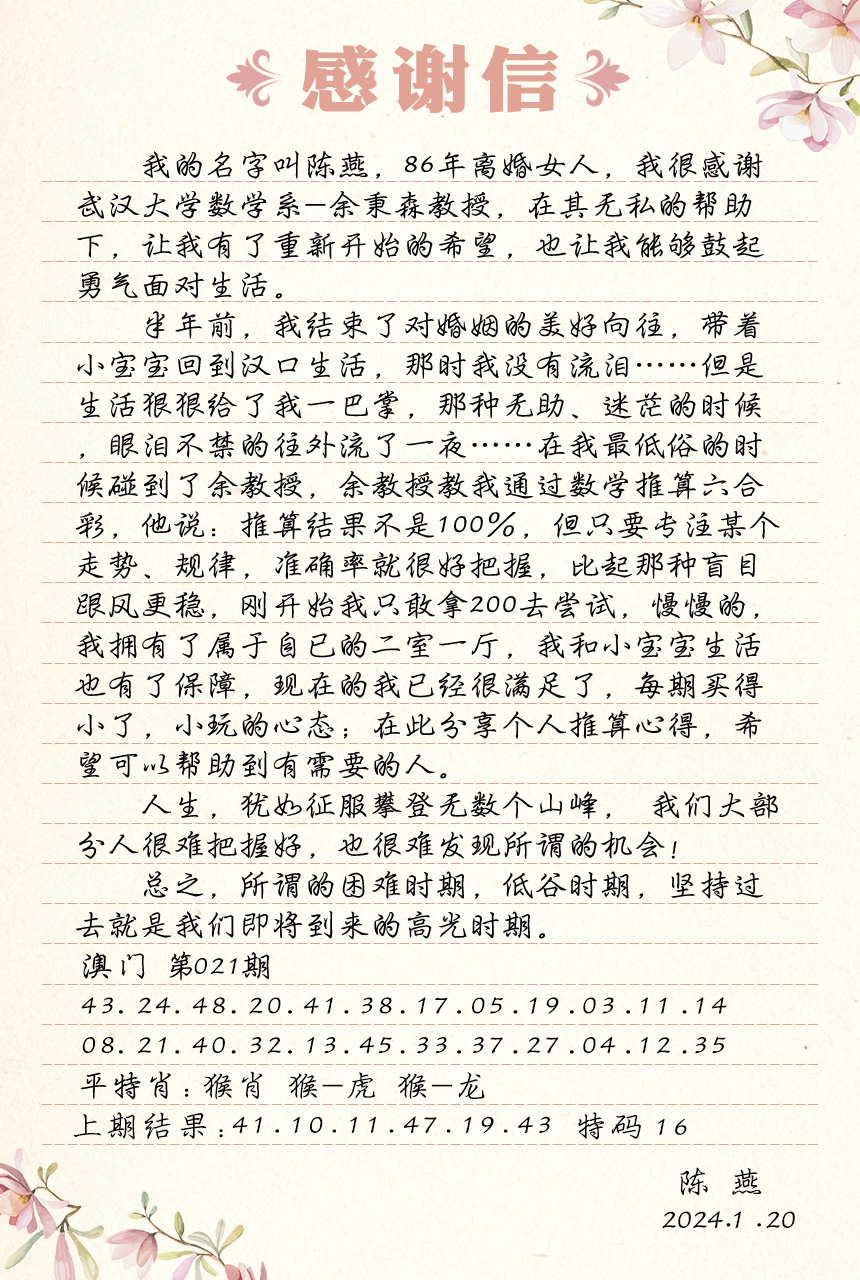 感谢信
我的名字叫陈燕，86年离婚女人，我很感谢
武汉大学数学系—余秉森教授，在其无私的帮助
下，让我有了重新开始的希望，也让我能够鼓起
勇气面对生活。
半年前，我结束了对婚姻的美好向往，带着
小宝宝回到汉口生活，那时我没有流泪……但是
生活狠狠给了我一巴掌，那种无助、迷茫的时候
，眼泪不禁的往外流了一夜……在我最低俗的时
候碰到了余教授，余教授教我通过数学推算六合
彩，他说：推算结果不是100%，但只要专注某个
走势、规律，准确率就很好把握，比起那种盲目
跟风更稳，刚开始我只敢拿200去尝试，慢慢的，
我拥有了属于自已的二室一厅，我和小宝宝生活
也有了保障，现在的我已经很满足了，每期买得
小了，小玩的心态；在此分享个人推算心得，希
望可以帮助到有需要的人。
人生，犹如征服攀登无数个山峰， 我们大部
分人很难把握好，也很难发现所谓的机会！
总之，所谓的困难时期，低谷时期，坚持过
去就是我们即将到来的高光时期。
澳门 第021期
43.24.48.20.41.38.17.05.19.03.11.14
08.21.40.32.13.45.33.37.27.04.12.35
平特肖：猴肖 猴—虎 猴—龙
上期结果：41.10.11.47.19.43 特码 16
陈 燕
2024.1.20